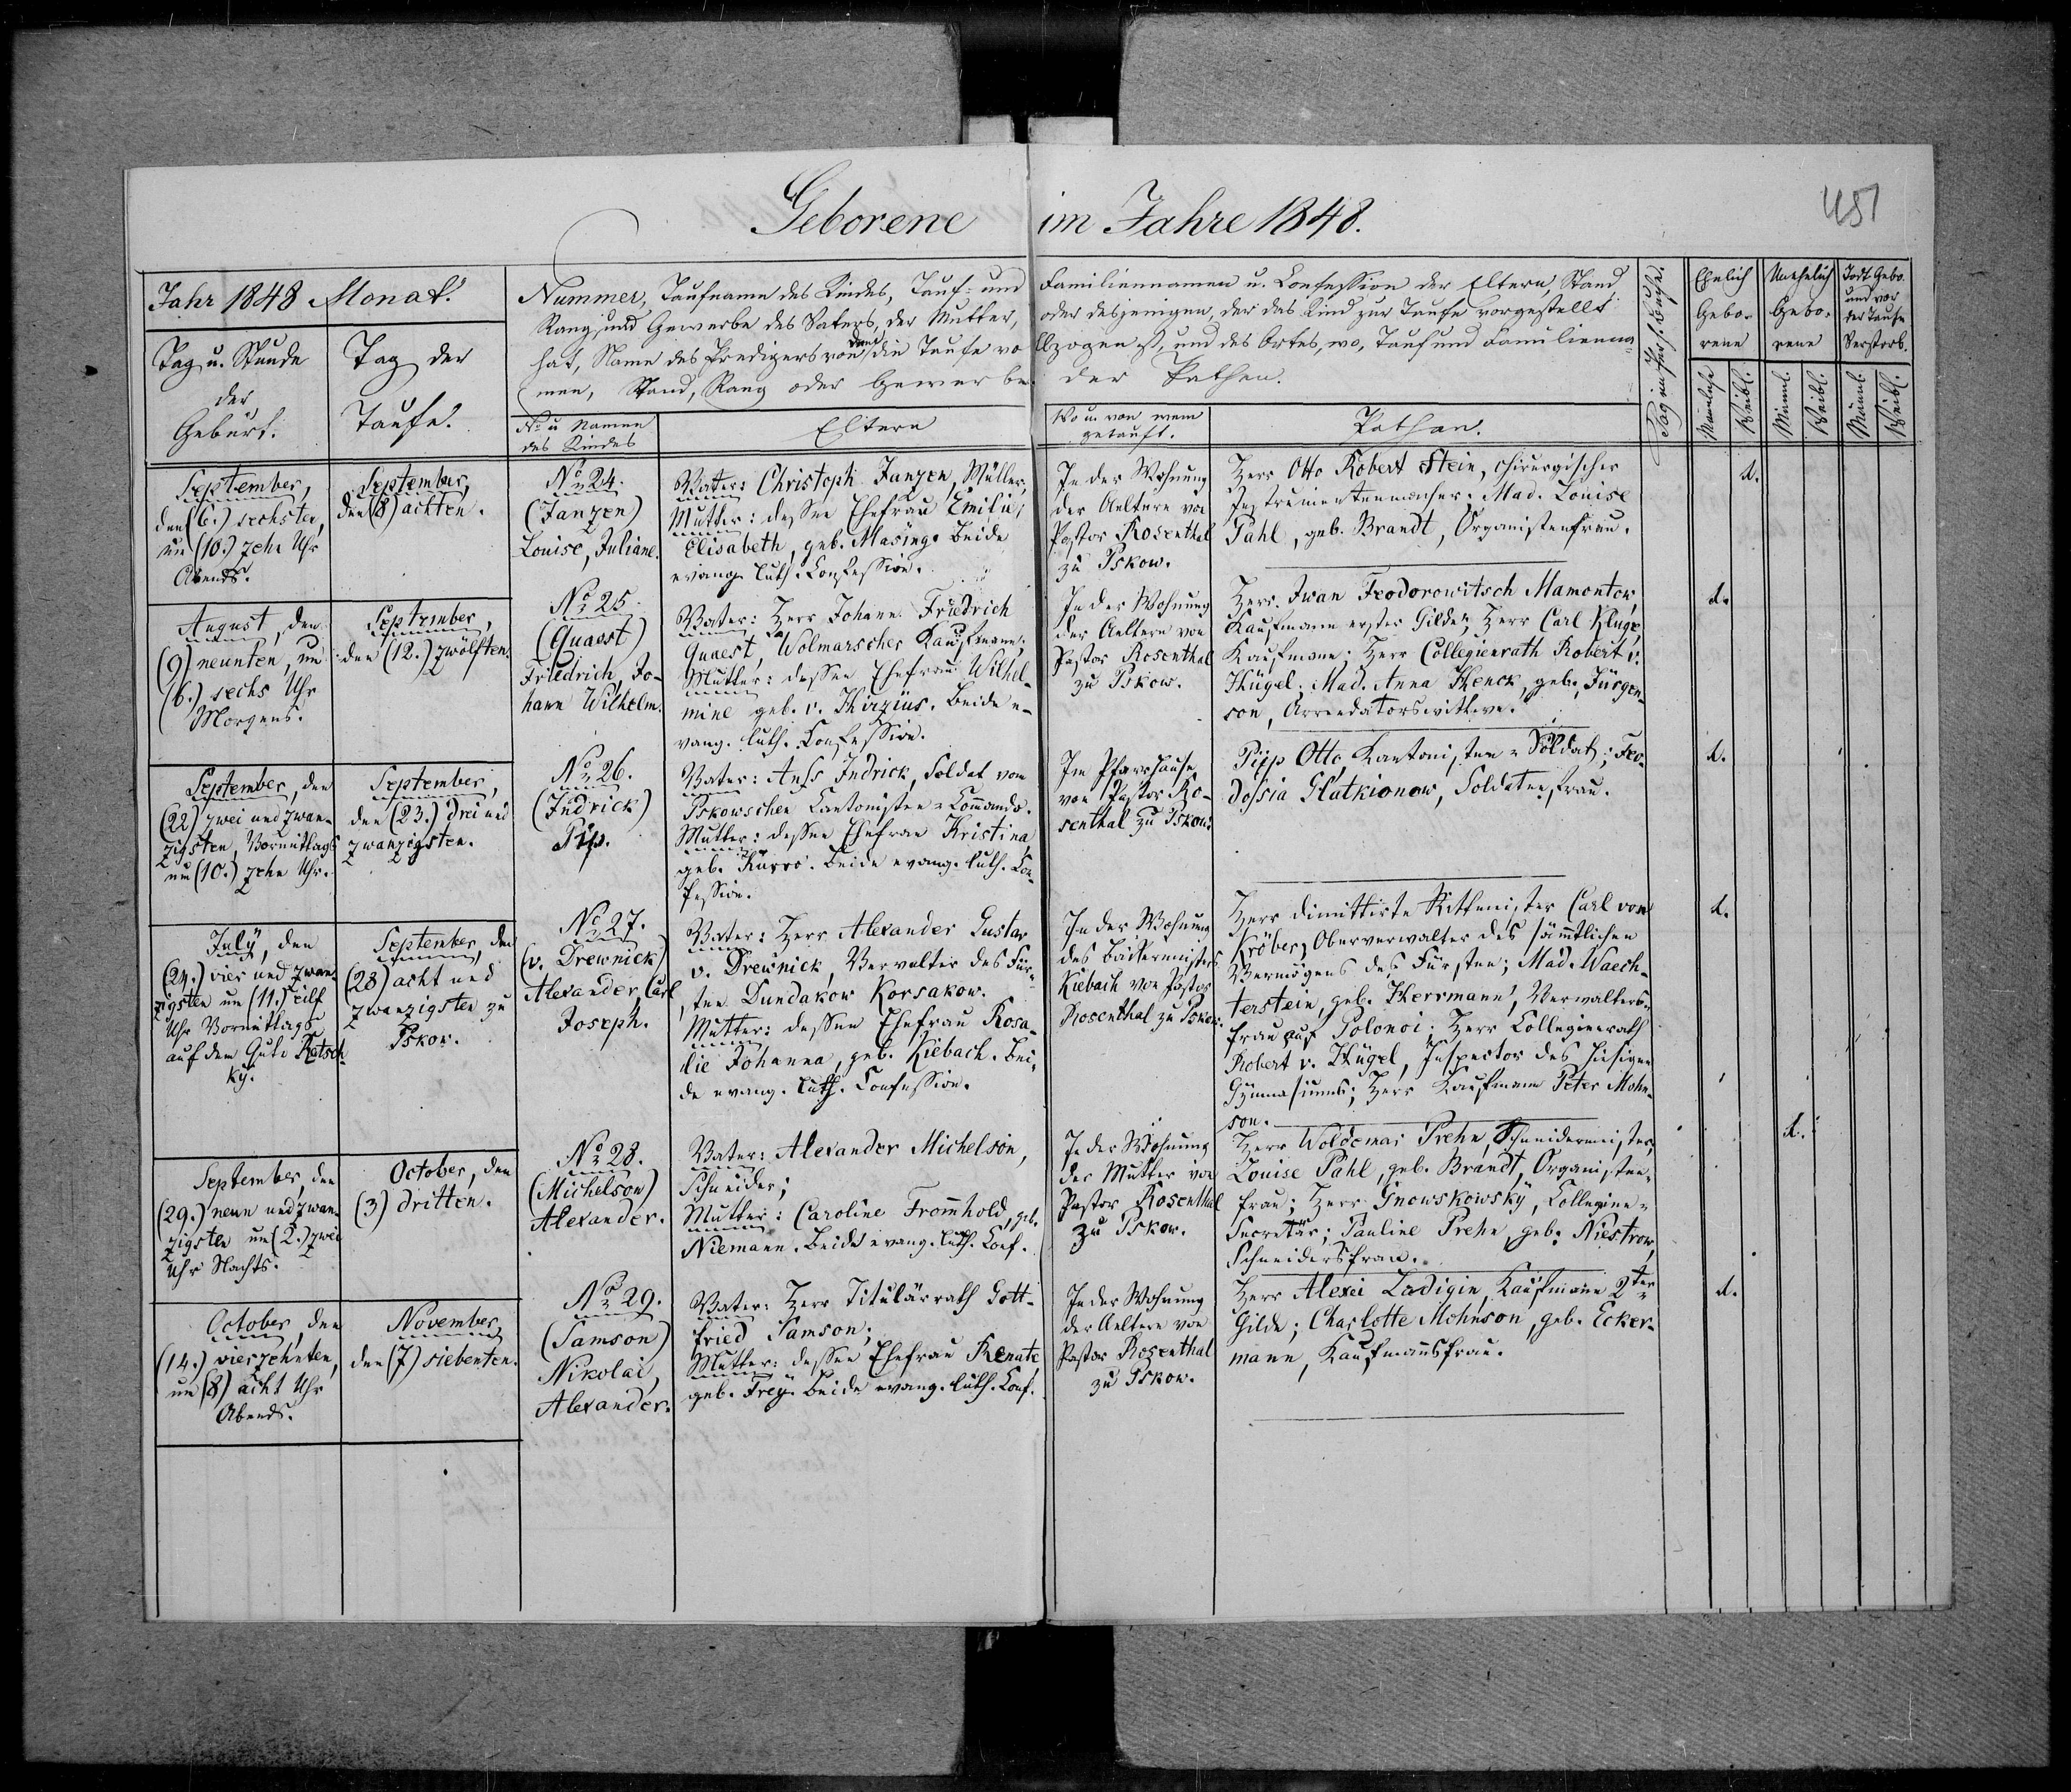 Geborene im Jahre 1848.
451
Jahr 1848 Monat.
Tag u. Stunde
der
Geburt.
Tag der
Taufe.
Nummer, Taufname des Kindes, Tauf- und Familiennamen u. Confession der Eltern, Stand
Rang und Gewerbe des Vaters, der Mutter, oder desjenigen, der das Kind zur Taufe vorgestellt
hat, Name des Predigers von dem die Taufe vollzogen ist, und des Ortes, wo, Tauf und Familienna-
men, Stand, Rang oder Gewerbe der Pathen.
No u Namen
des Kindes
Eltern
Wo u. von wem
getauft.
Pathen.
Ehelich
Gebo-
rene
Unehelich
Gebo-
rene
Todt Gebo.
und vor
der Taufe
Verstorb.
Männliche
Weibl.
Männl.
Weibl.
Männl.
Weibl.
September,
den (6.) sechsten,
um (10.) zehn Uhr
Abends.
September,
den (8) achten.
No 24.
(Janzen)
Louise, Juliane.
Vater: Christoph Janzen, Müller,
Mutter: dessen Ehefrau Emilie,
Elisabeth, geb. Masing. Beide
evang. luth. Confession.
In der Wohnung
der Aeltern von
Pastor Rosenthal
zu Pskow.
Herr Otto Robert Stein, chirurgischer
Instrumentenmacher. Mad. Louise
Pahl, geb. Brandt, Organistenfrau.
August, den
(9) neunten, um
(6.) sechs Uhr
Morgens.
September,
den (12.) zwölften.
No 25.
(Quaest)
Friedrich, Jo-
hann Wilhelm.
Vater: Herr Johann Friedrich
Quaest, Wolmarscher Kaufmann;
Mutter: dessen Ehefrau Wilhel-
mine geb. v. Thirzius. Beide e-
vang. luth. Confession.
In der Wohnung
der Aeltern von
Pastor Rosenthal
zu Pskow.
Herr Iwan Feodorowitsch Mamontow,
Kaufmann erster Gilde; Herr Carl Kluge,
Kaufmann; Herr Collegienrath Robert v.
Hügel. Mad. Anna Henck, geb. Jürgen-
son, Arrendatorswittwe.
September, den
(22) zwei und zwan-
zigsten, Vormittags
um (10.) zehn Uhr.
September,
den (23.) drei und
zwanzigsten.
No 26.
(Indrick)
Pip.
Vater: Anss Indrick, Soldat vom
Pskowschen Cantonisten-Commando.
Mutter: dessen Ehefrau Kristina,
geb. Kurro. Beide evang. luth. Con-
fession.
Im Pfarrhause
von Pastor Ro-
senthal zu Pskow.
Piip Otto, Kantonisten-Soldat; Feo-
dossia Glutkionow, Soldatenfrau.
July, den
(24.) vier und zwan-
zigsten um (11.) eilf
Uhr Vormittags
auf dem Gute Retsch-
ky.
September, den
(28) acht und
zwanzigsten zu
Pskow.
No 27.
(v. Drewnick)
Alexander, Carl
Joseph.
Vater: Herr Alexander Gustav
v. Drewnick, Verwalter des Für-
sten Dundakow Korsakow.
Mutter: dessen Ehefrau Rosa-
lie Johanna, geb. Kiebach. Bei-
de evang. luth. Confession.
In der Wohnung
des Bäckermeisters
Kiebach von Pastor
Rosenthal zu Pskow.
Herr dimittirte Rittmeister Carl von
Kröber, Oberverwalter des sämmtlichen
Vermögens des Fürsten; Mad. Waech-
terstein, geb. Herrmann, Verwalters-
frau auf Polonoi; Herr Collegienrath
Robert v. Hügel, Inspector des hiesigen
Gymnasiums; Herr Kaufmann Peter Mohn-
son.
September, den
(29.) neun und zwan-
zigsten um (2.) zwei
Uhr Nachts.
October, den
(3) dritten.
No 28.
(Michelson)
Alexander.
Vater: Alexander Michelson,
Schneider;
Mutter: Caroline Frommhold, geb.
Niemann. Beide evang. luth. Conf.
In der Wohnung
der Mutter von
Pastor Rosenthal
zu Pskow.
Herr Woldemar Prehn, Schneidermeister,
Louise Pahl, geb. Brandt, Organisten-
frau; Herr Gnowskowsky, Collegien-
Secretär; Pauline Prehn, geb. Niestrow,
Schneidersfrau.
October, den
(14.) vierzehnten,
um (8) acht Uhr
Abends.
November,
den (7) siebenten.
No 29.
(Samson)
Nikolai,
Alexander.
Vater: Herr Titulärrath Gott-
fried Samson;
Mutter: dessen Ehefrau Renate
geb. Frey. Beide evang. luth. Conf.
In der Wohnung
der Aeltern von
Pastor Rosenthal
zu Pskow.
Herr Alexei Ladigin, Kaufmann 2ter
Gilde; Charlotte Mohnson, geb. Ecker-
mann, Kaufmannsfrau.